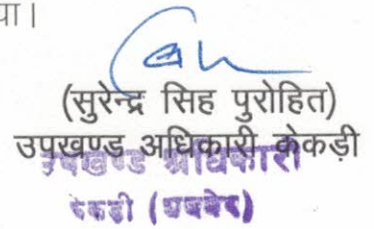 या।
(सुरेन्द्र सिंह पुरोहित)
उपखण्ड अधिकारी केकड़ी
उपखण्ड अधिकारी
केकड़ी (अजमेर)